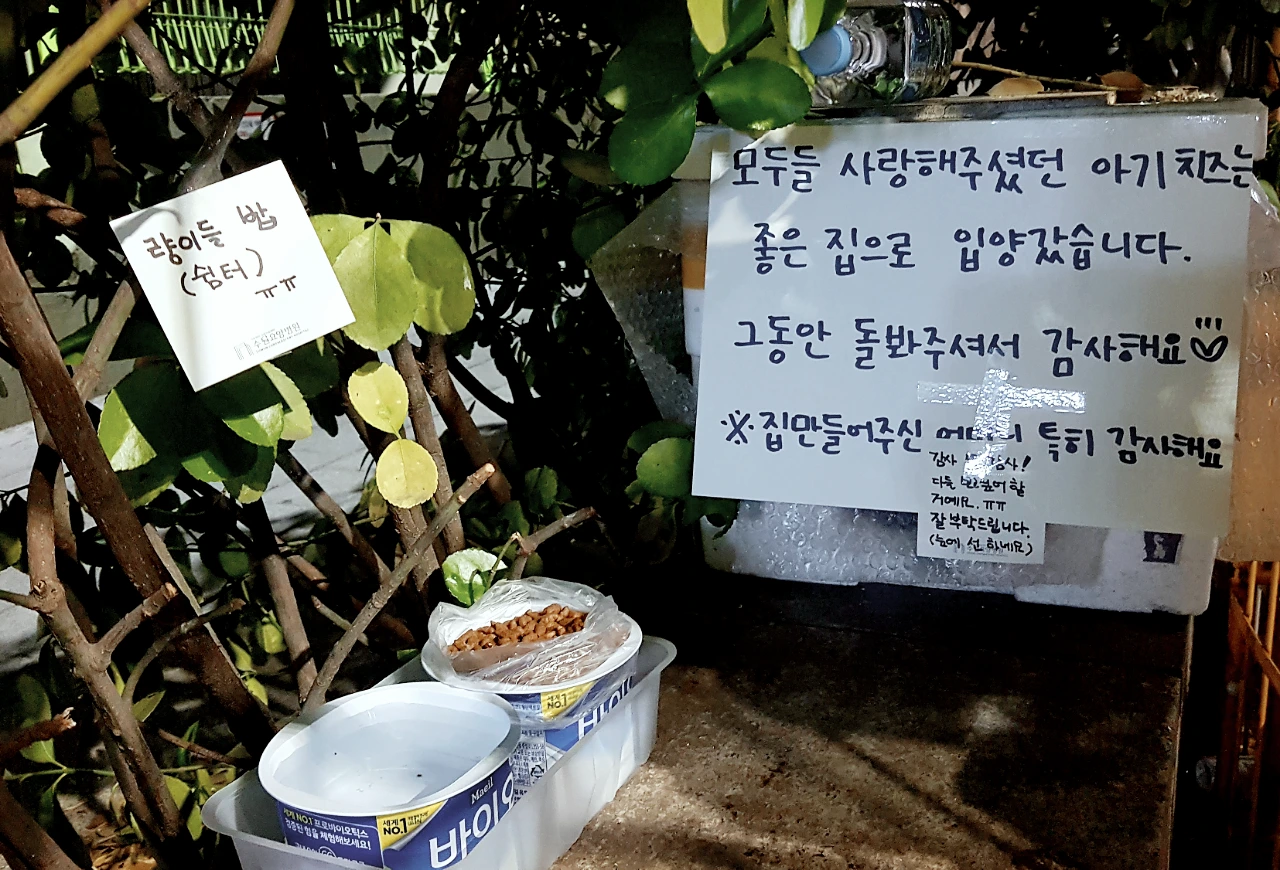 량이들 밥
(쉼터)
ㅠㅠ
모두들 사랑해주셨던 아기 치즈는
좋은 집으로 입양갔습니다.
그동안 돌봐주셔서 감사해요
※집만들어주신 특히 감사해요
감사!
거예요. ㅠㅠ
잘 부탁드립니다.
(눈에 선 하네요)
Maeil
세계 NO.1 프로바이오틱스
검증된 힘을 체험해보세요!
세계 NO.1
바이오
세계 NO.1
바이